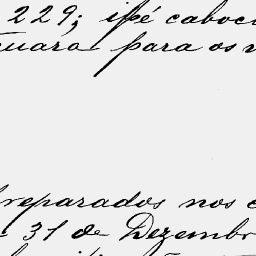 229; ipé caboc
uara para os
preparados nos
31 de Dezembr